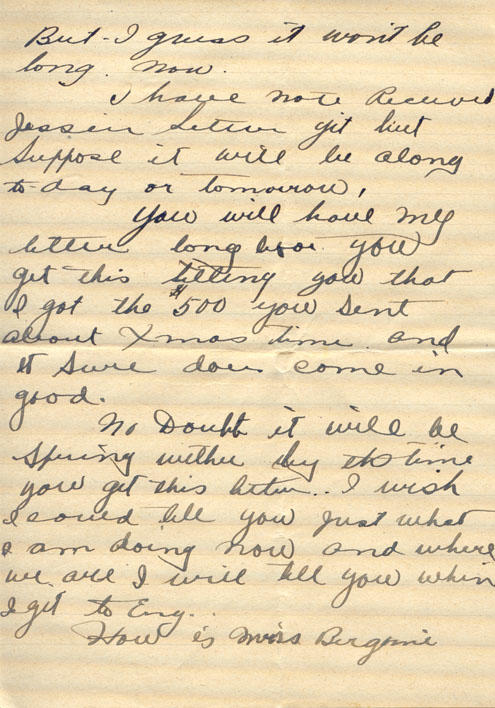 But I guess it wont be
long. now.
I have note Received
Jessies letter yit but
suppose it will be along
to-day or tomorrow,
You will have my
letter long befor you
get this telling you that
I got the $500 you sent
about Xmas time and
it sure does come in
good.
No Doubt it will be
Spring wether by the time
you get this letter.. I wish
I could tell you just what
I am doing now and where
we are I will tell you when
I get to Eng..
How is Miss